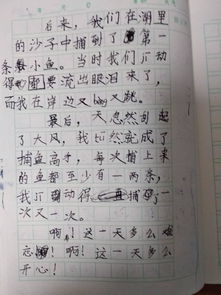 后来，我们在湖里
的沙子中捕到了第一
条小鱼。当时我们激动
得都要流出眼泪来了，
而我在岸边又bèng又跳。
最后，天忽然刮起
了大风，我忽然就成了
捕鱼高手，每次捕上来
的鱼都至少有一两条，
我激动得捕了一
次又一次。
啊！这一天多么难
忘啊！这一天多么
开心！